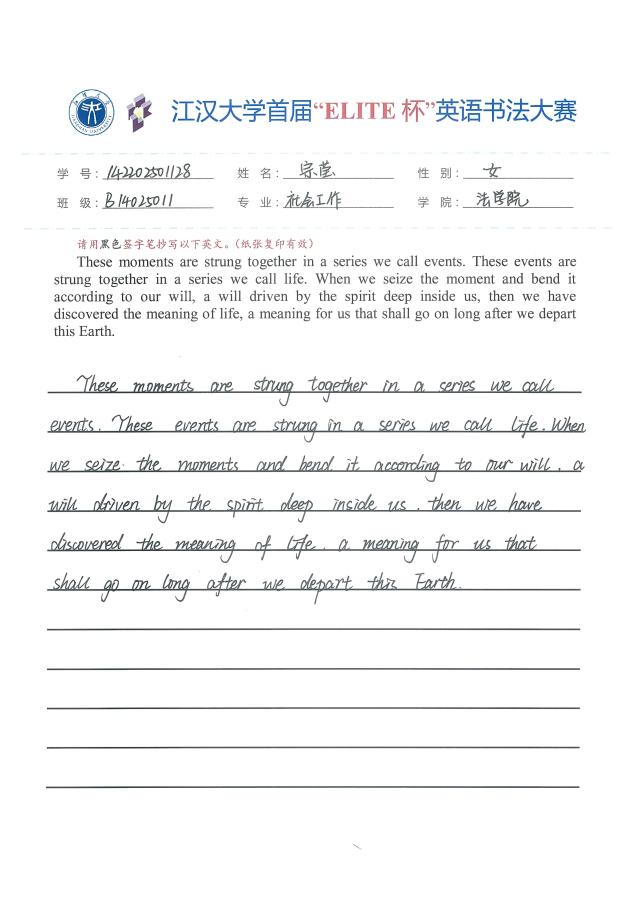 江汉大学首届“ELITE 杯”英语书法大赛
学 号: 142202501128 姓 名: 宗莹 性 别: 女
班 级: B14025011 专 业: 社会工作 学 院: 法学院
请用黑色签字笔抄写以下英文。(纸张复印有效)
These moments are strung together in a series we call events. These events are
strung together in a series we call life. When we seize the moment and bend it
according to our will, a will driven by the spirit deep inside us, then we have
discovered the meaning of life, a meaning for us that shall go on long after we depart
this Earth.
These moments are strung together in a series we call
events. These events are strung in a series we call life. When
we seize the moments and bend it according to our will, a
will driven by the spirit deep inside us, then we have
discovered the meaning of life, a meaning for us that
shall go on long after we depart this Earth.